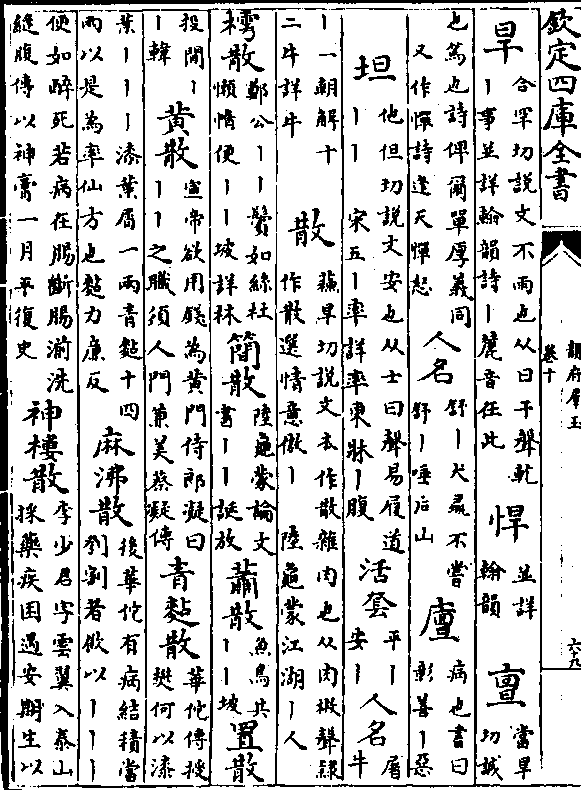 欽定四庫全書
韻府羣玉
卷十
六九
旱
合罕切說文不雨也从日干聲亁
丨事並詳翰韻詩丨麓音在此
悍
並詳
翰韻
亶
當旱
切誠
也篤也詩俾爾單厚義同
又作憚詩逢天憚怒
人名
舒丨犬彘不嘗
舒丨唾后山
癉
病也書曰
彰善丨惡
坦
他但切說文安也从土旦聲易履道
丨丨 宋五丨率詳率東牀丨腹
活套
平丨
安丨
人名
屠
牛
丨一朝解十
二牛詳牛
散
蘓旱切說文本作散雜肉也从肉㪔聲隸
作散選情意倣丨 陸龜蒙江湖丨人
樗散
鄭公丨丨鬢如絲杜
懶惰便丨丨坡詳林
簡散
陸龜蒙論文
書丨丨誕放
蕭散
魚鳥共
丨丨坡
置散
投閒丨
丨韓
黄散
宣帝欲用錢為黄門侍郎凝曰
丨丨之職須人門兼美蔡凝傳
青黏散
華佗傳授
樊何以漆
葉丨丨丨漆葉屑一兩青黏十四
兩以是為率仙方也黏力廉反
麻沸散
後華佗有病結積當
刳割者飲以丨丨丨
便如醉死若病在腸斷腸湔洗
縫腹傅以神膏一月平復史
神樓散
李少君字雲翼入泰山
採藥疾困遇安期生以